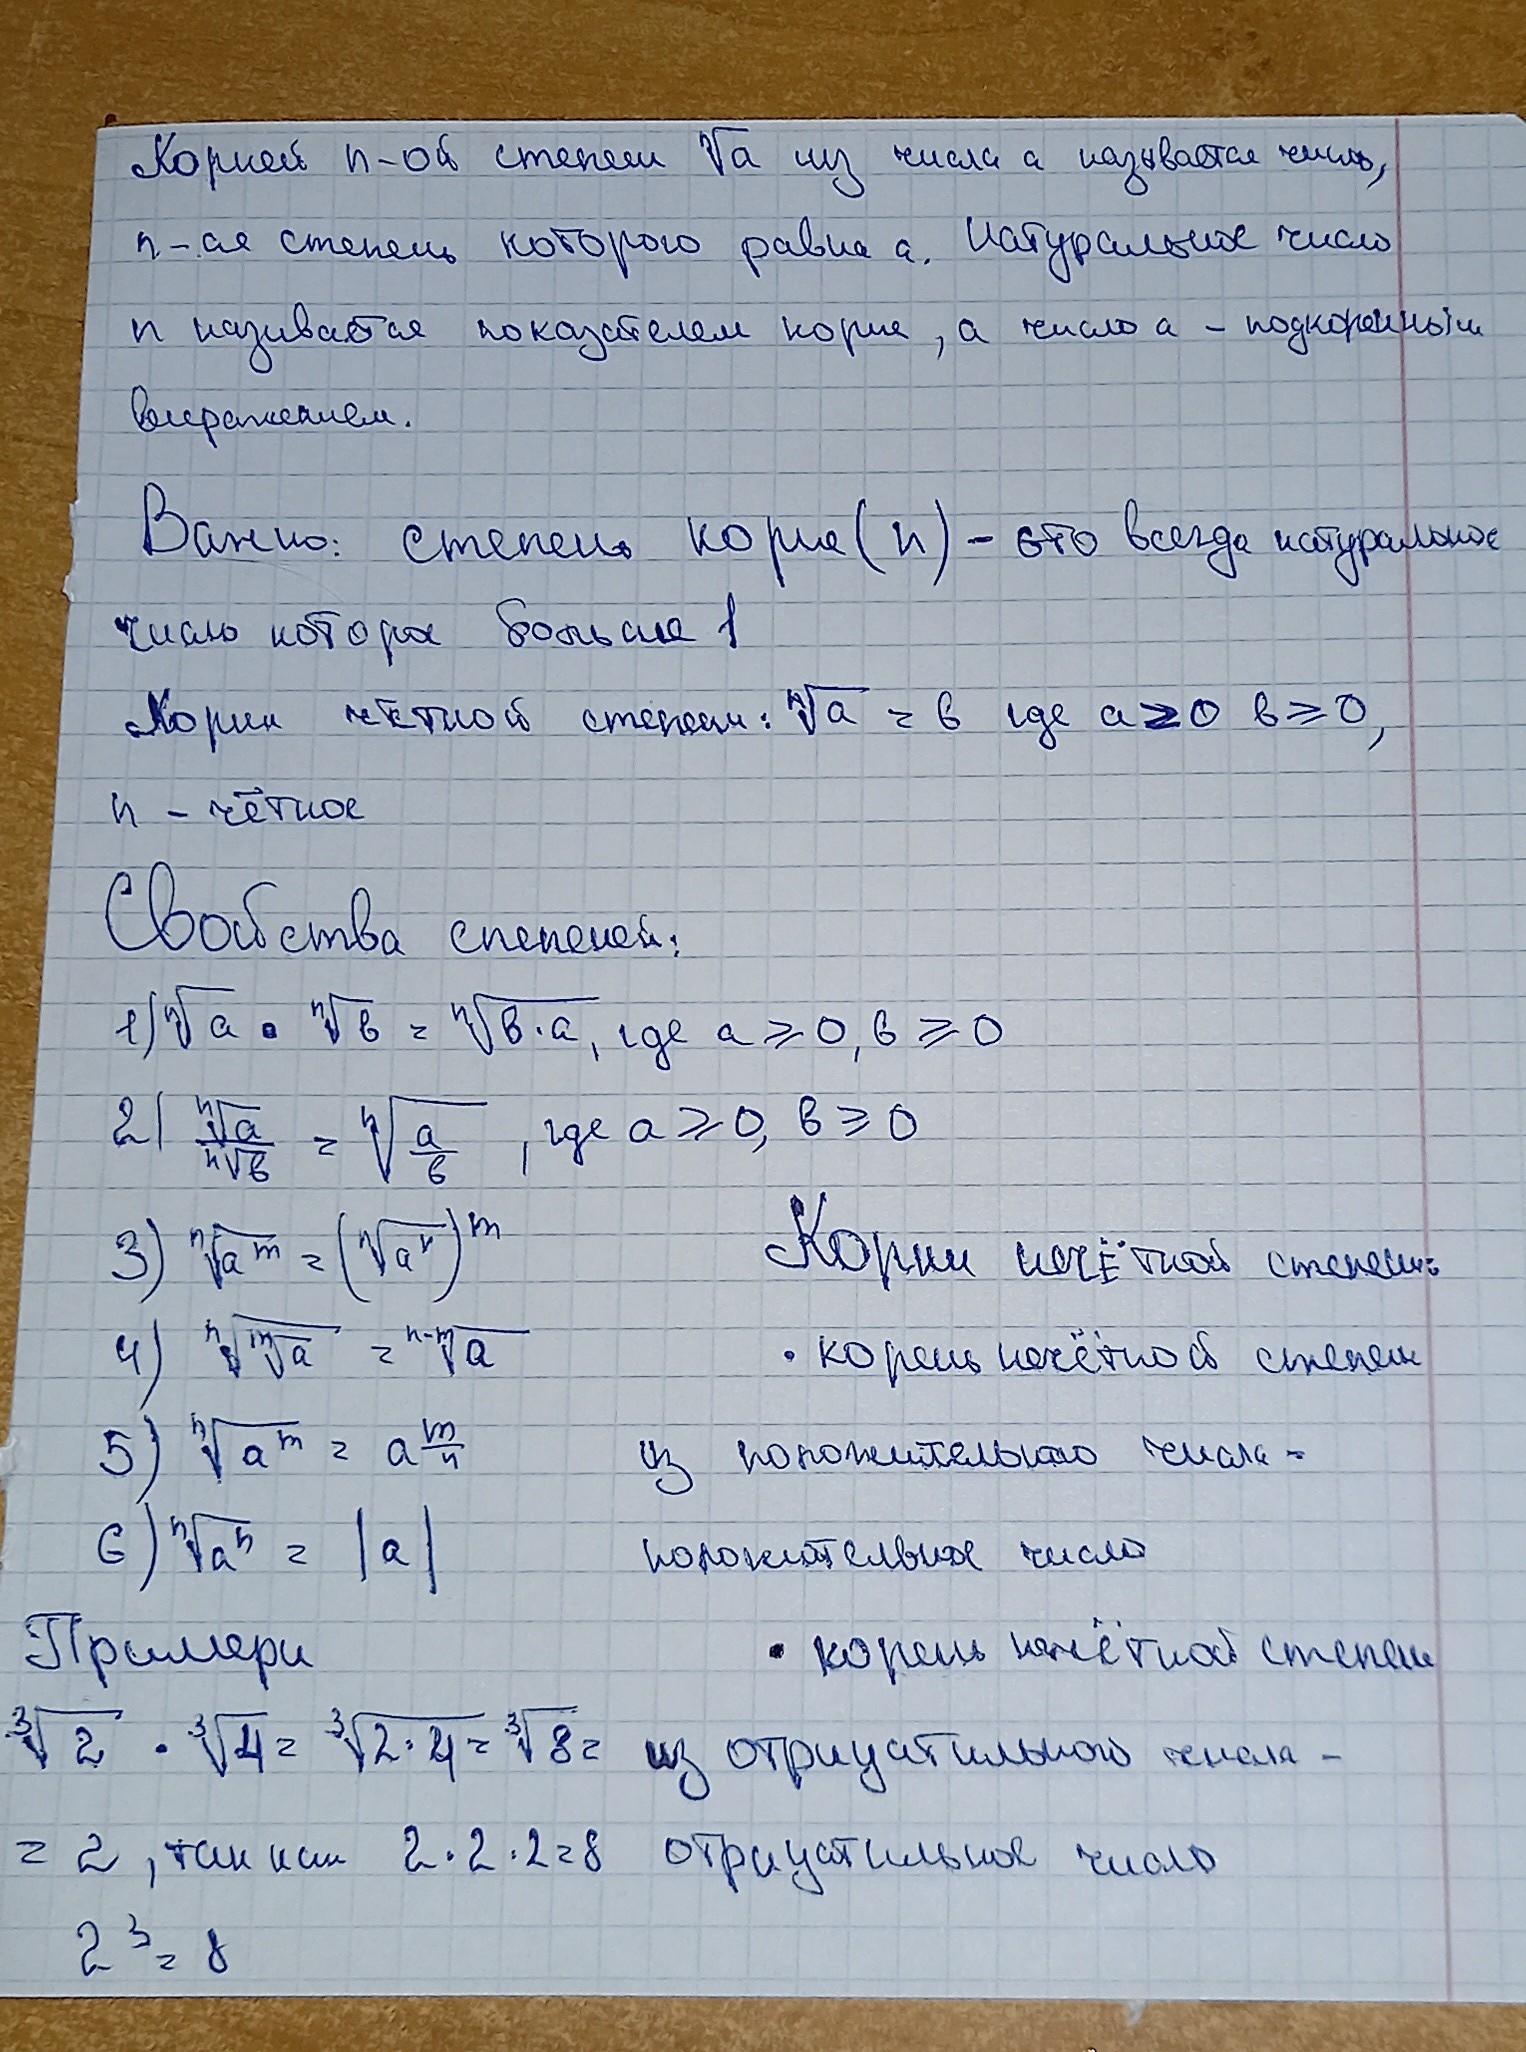 Корнем n-ой степени √a из числа a называется число,
n-ая степень которого равна a. Натуральное число
n называется показателем корня, а число a - подкоренным
выражением.
Важно: степень корня (n) - это всегда натуральное
число которое больше 1
Корни чётной степени: ⁿ√a = b где a ≥ 0 b ≥ 0,
n - чётное
Свойства степеней:
1) ⁿ√a · ⁿ√b = ⁿ√(b·a), где a ≥ 0, b ≥ 0
2) ⁿ√a / ⁿ√b = ⁿ√(a/b), где a ≥ 0, b ≥ 0
3) ⁿ√(a^m) = (ⁿ√(aⁿ))^m
4) ⁿ√(ᵐ√a) = ⁿ·ᵐ√a
5) ⁿ√(a^m) = a^(m/n)
6) ⁿ√(aⁿ) = |a|
Корни нечётной степени:
• корень нечётной степени
из положительного числа -
положительное число
• корень нечётной степени
из отрицатильного числа -
отрицатильное число
Примеры
³√2 · ³√4 = ³√(2·4) = ³√8 =
= 2, так как 2·2·2=8
2³ = 8